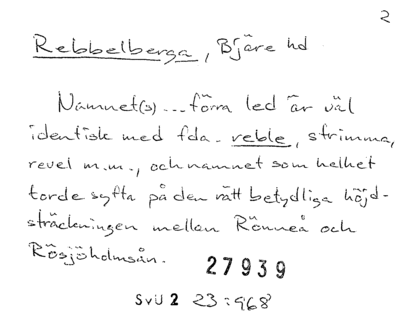 2
Rebbelberga, Bjäre hd
Namnet(s) ... förra led är väl
identisk med fda. reble, strimma,
revel m.m., och namnet som helhet
torde syfta på den rätt betydliga höjd-
sträckningen mellan Rönneå och
Rösjöholmsån.
27939
SvU 2 23:968